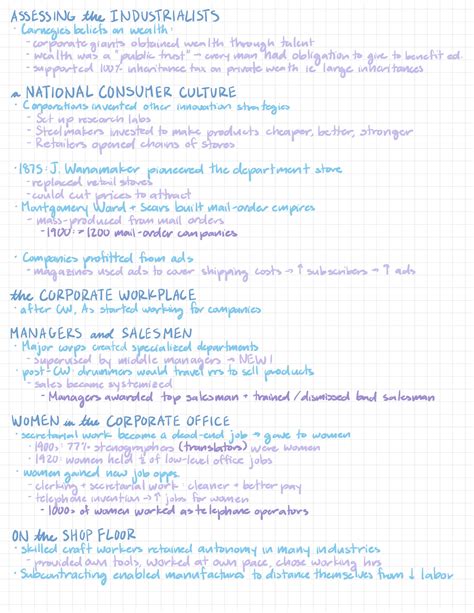 ASSESSING the INDUSTRIALISTS
· Carnegies beliefs on wealth:
- corporate giants obtained wealth through talent
- wealth was a "public trust" → every man had obligation to give to benefit ed.
- supported 100% inheritance tax on private wealth ie large inheritances
a NATIONAL CONSUMER CULTURE
· Corporations invented other innovation strategies
- Set up research labs
- Steelmakers invested to make products cheaper, better, stronger
- Retailers opened chains of stores
· 1875: J. Wanamaker pioneered the department store
- replaced retail stores
- could cut prices to attract
· Montgomery Ward + Sears built mail-order empires
- mass-produced from mail orders
- 1900: >1200 mail-order companies
· Companies profitted from ads
- magazines used ads to cover shipping costs → ↑ subscribers → ↑ ads
the CORPORATE WORKPLACE
· after CW, As started working for companies
MANAGERS and SALESMEN
· Major corps created specialized departments
- supervised by middle managers → NEW!
· post-CW: drummers would travel rrs to sell products
- sales became systemized
- Managers awarded top salesman + trained / dismissed bad salesman
WOMEN in the CORPORATE OFFICE
· secretarial work became a dead-end job → gave to women
- 1900s: 77% stenographers (translators) were women
- 1920: women held ½ of low-level office jobs
· women gained new job opps.
- clerking + secretarial work: cleaner + better pay
- telephone invention → ↑ jobs for women
- 1000s of women worked as telephone operators
ON the SHOP FLOOR
· skilled craft workers retained autonomy in many industries
- provided own tools, worked at own pace, chose working hrs
· Subcontracting enabled manufactures to distance themselves from ↓ labor